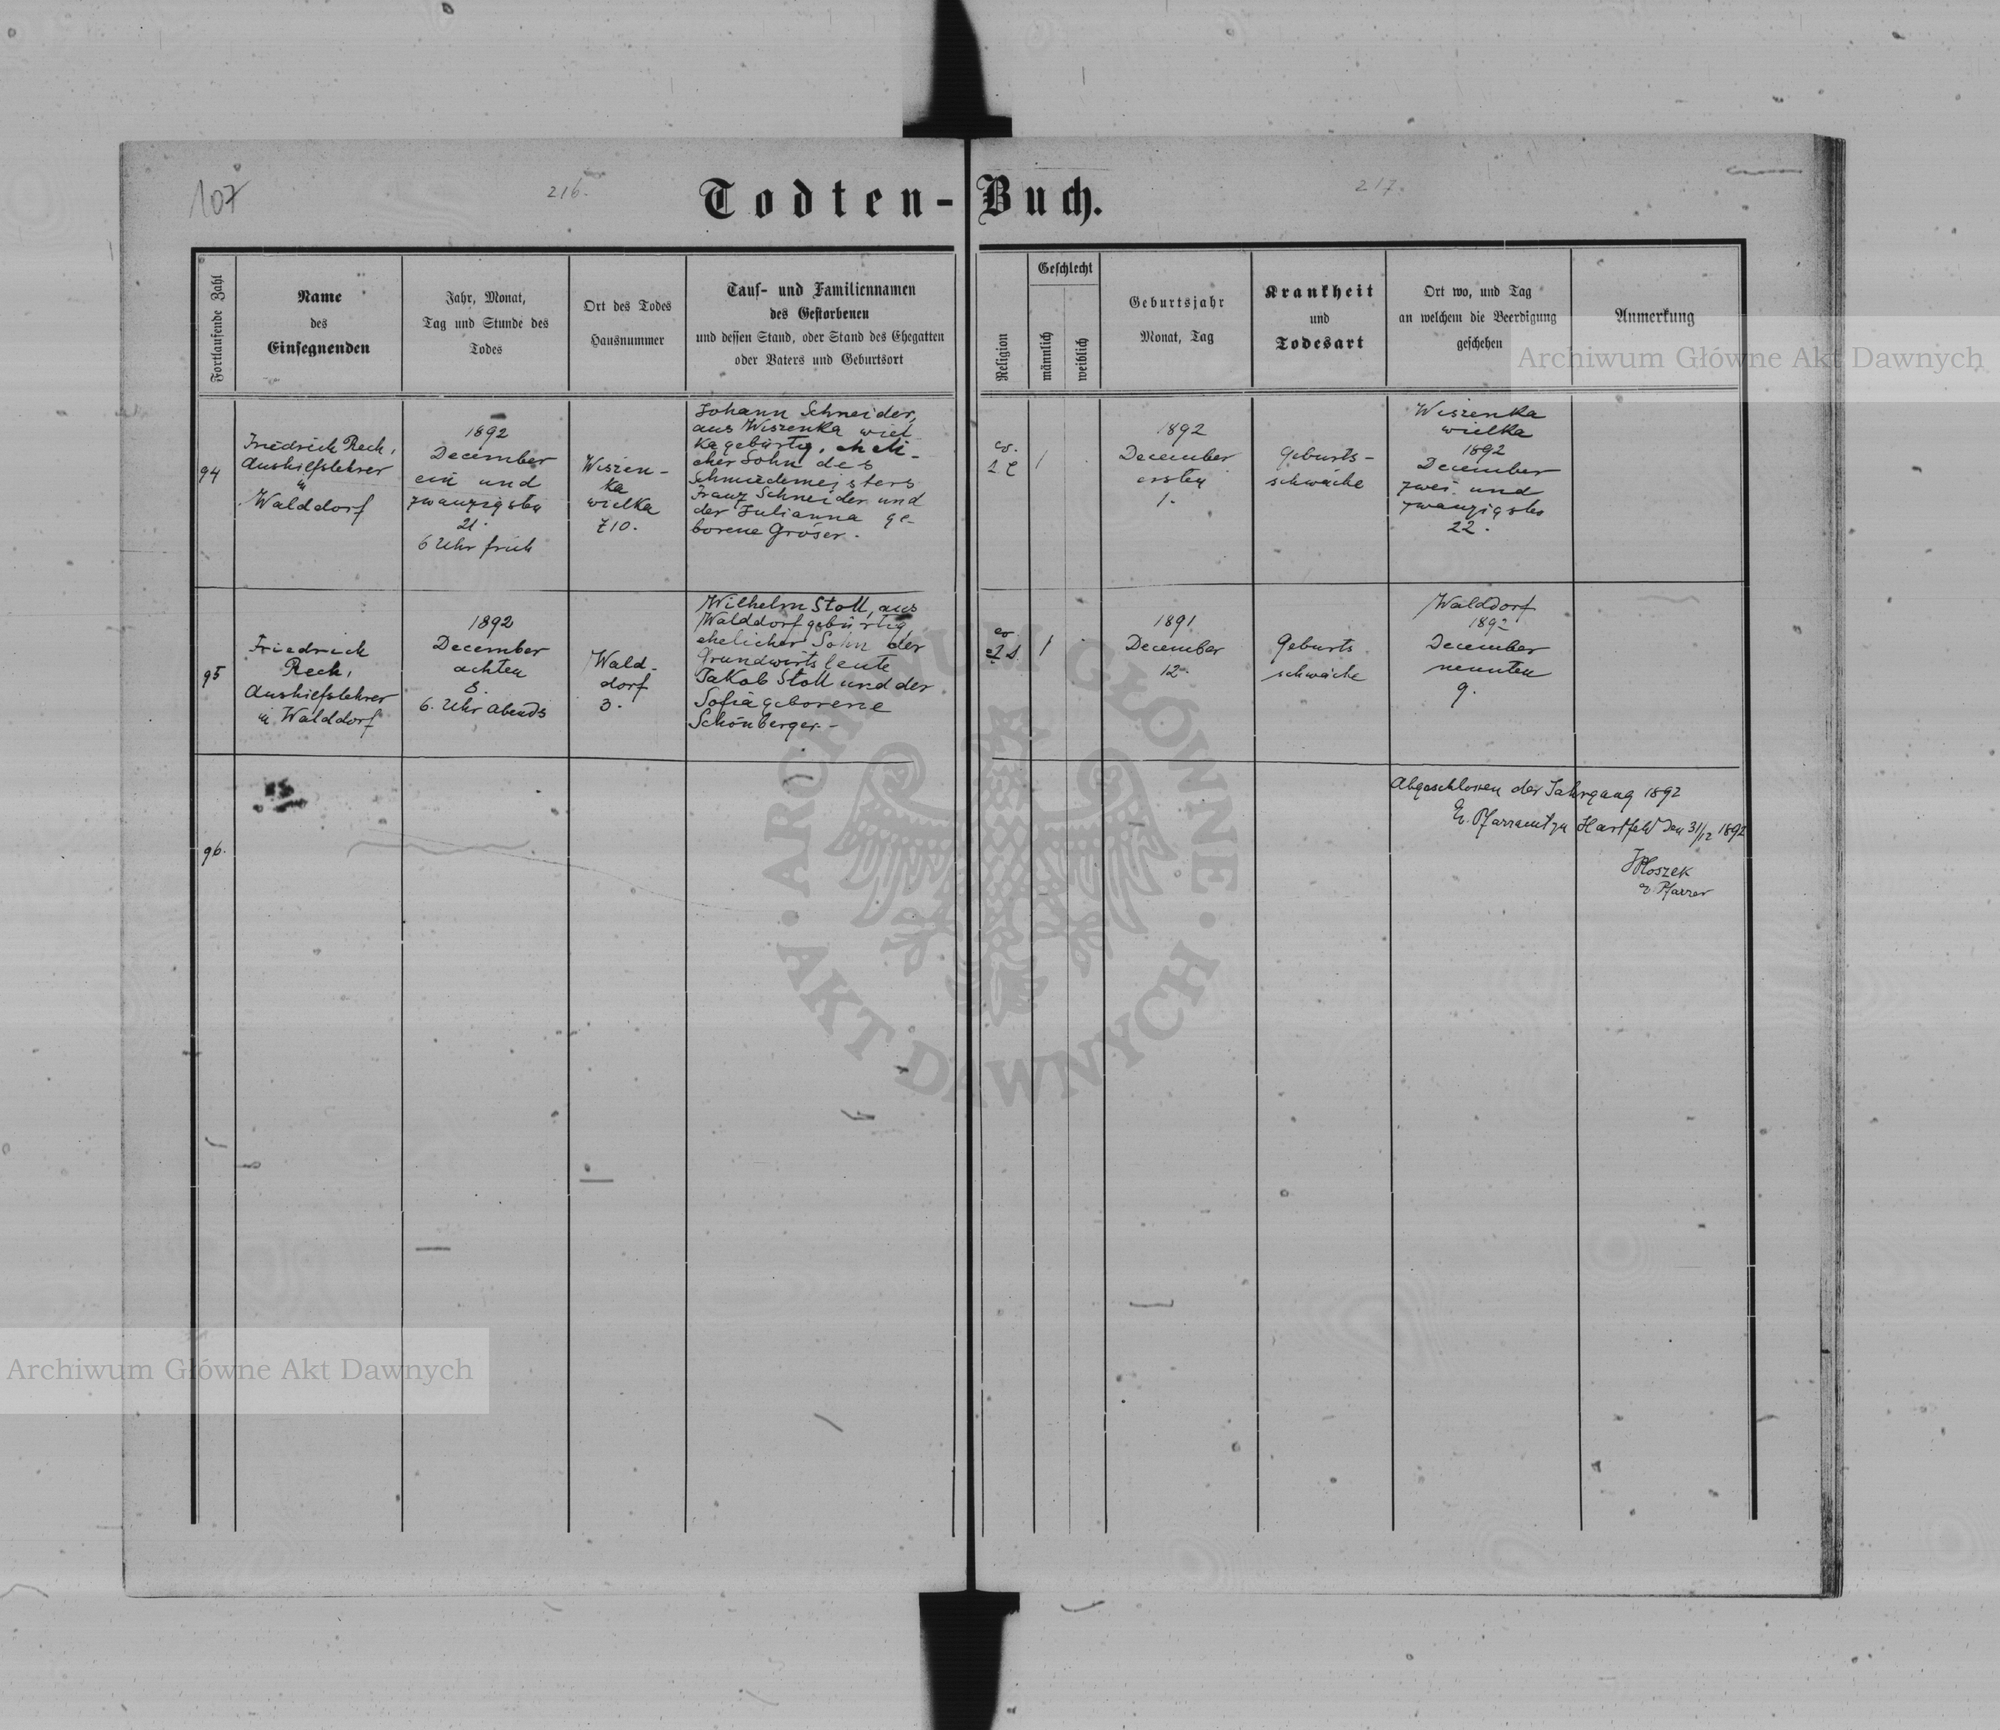 107
216.
Todten-Buch.
217.
Fortlaufende Zahl
Name
des
Einsegnenden
Jahr, Monat,
Tag und Stunde des
Todes
Ort des Todes
Hausnummer
Tauf- und Familiennamen
des Gestorbenen
und dessen Stand, oder Stand des Ehegatten
oder Vaters und Geburtsort
Religion
Geschlecht
männlich
weiblich
Geburtsjahr
Monat, Tag
Krankheit
und
Todesart
Ort wo, und Tag
an welchem die Beerdigung
geschehen
Anmerkung
94
Friedrich Rech,
Aushilfslehrer
in
Walddorf
1892
December
ein und
zwanzigsten
21.
6 Uhr früh
Wiszen-
ka
wielka
710.
Johann Schneider,
aus Wiszenka wiel
ka gebürtig, eheli-
cher Sohn des
Schmiedemeisters
Franz Schneider und
der Julianna ge-
borene Gröser.
ev.
1
1892
December
ersten
1.
Geburts-
schwäche
Wiszenka
wielka
1892
December
zwei und
zwanzigsten
22.
95
Friedrich
Rech,
Aushilfslehrer
in Walddorf
1892
December
achten
8.
6. Uhr Abends
Wald-
dorf
3.
Wilhelm Stoll, aus
Walddorf gebürtig,
ehelicher Sohn der
Grundwirtsleute
Jakob Stoll und der
Sofia geborene
Schönberger.-
ev
1
1891
December
12.
Geburts
schwäche
Walddorf
1892
December
neunten
9.
96.
Abgeschlossen der Jahrgang 1892
Ev. Pfarramt zu Hartfeld den 31/12 1892
JRoszek
ev. Pfarrer
Archiwum Główne Akt Dawnych
Archiwum Główne Akt Dawnych
ARCHIWUM GŁÓWNE
AKT DAWNYCH